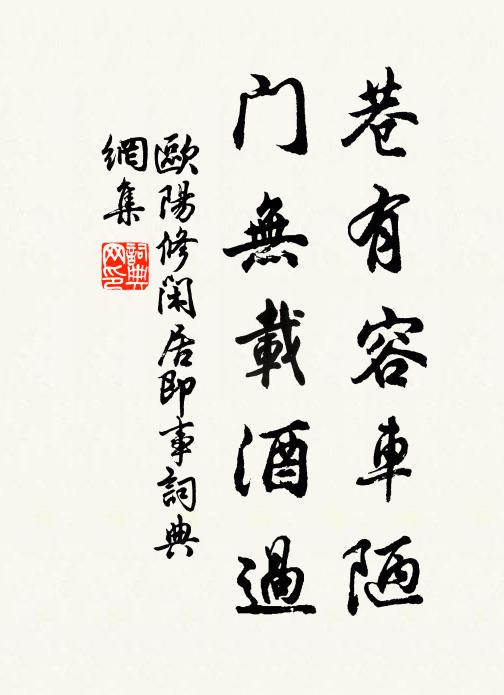 巷有容車陋
門無載酒過
歐陽修閑居即事詞典
網集
詞典
网印